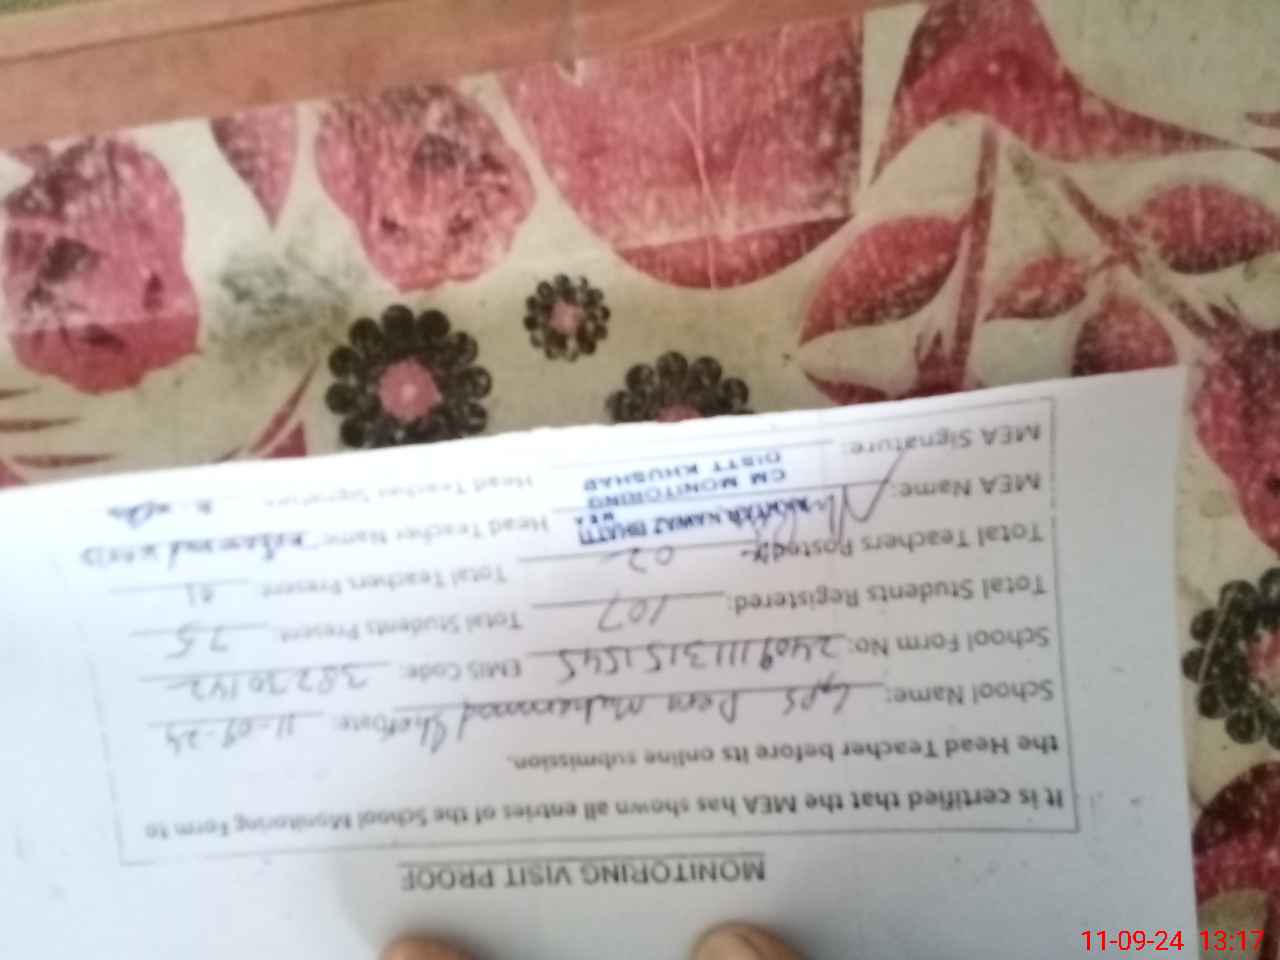 MONITORING VISIT PROOF
It is certified that the MEA has shown all entries of the School Monitoring Form to
the Head Teacher before its online submission.
School Name: GPS Dera Muhammad Date: 11-09-24
School Form No: EMIS Code: 38230142
Total Students Registered: 107 Total Students Present: 75
Total Teachers Posted: 02 Total Teachers Present: 01
MEA Name: AKHTAR NAWAZ BHATTI Head Teacher Name: Muhammad
MEA
CM MONITORING
DISTT KHUSHAB
MEA Signature: Head Teacher Signature:
11-09-24 13:17